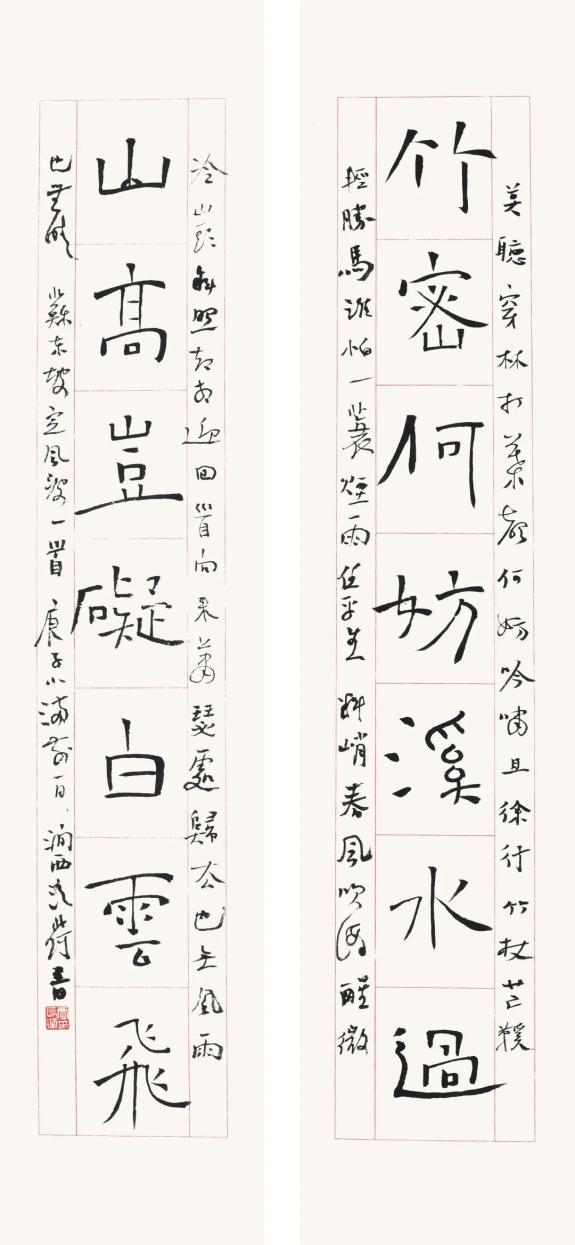 莫聽穿林打葉聲何妨吟嘯且徐行竹杖芒鞵
竹密何妨溪水過
輕勝馬誰怕一蓑煙雨任平生料峭春風吹酒醒微
冷山頭斜照却相迎回首向來蕭瑟處歸去也无風雨
山高豈礙白雲飛
也無晴 蘇東坡定風波一首 庚子小滿前一日 澗西 書